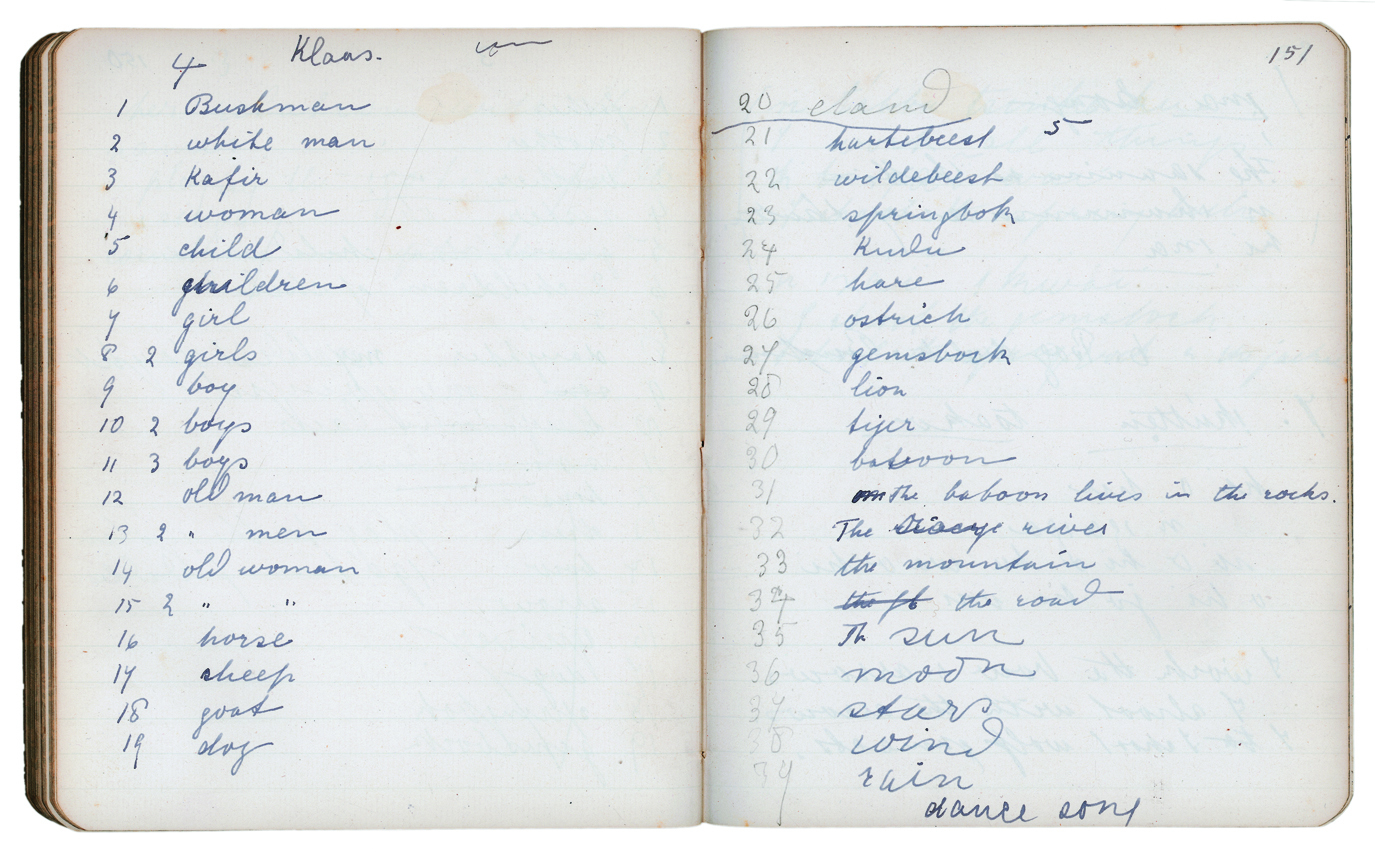 4 Klaas.
1 Bushman
2 white man
3 Kafir
4 woman
5 child
6 children
7 girl
8 2 girls
9 boy
10 2 boys
11 3 boys
12 old man
13 2 " men
14 old woman
15 2 " "
16 horse
17 sheep
18 goat
19 dog
151
20 eland
21 hartebeest 5
22 wildebeest
23 springbok
24 Kudu
25 hare
26 ostrich
27 gemsbock
28 lion
29 tijer
30 baboon
31 The baboon lives in the rocks.
32 The river
33 the mountain
34 the road
35 Th sun
36 moon
37 stars
38 wind
39 rain
dance song